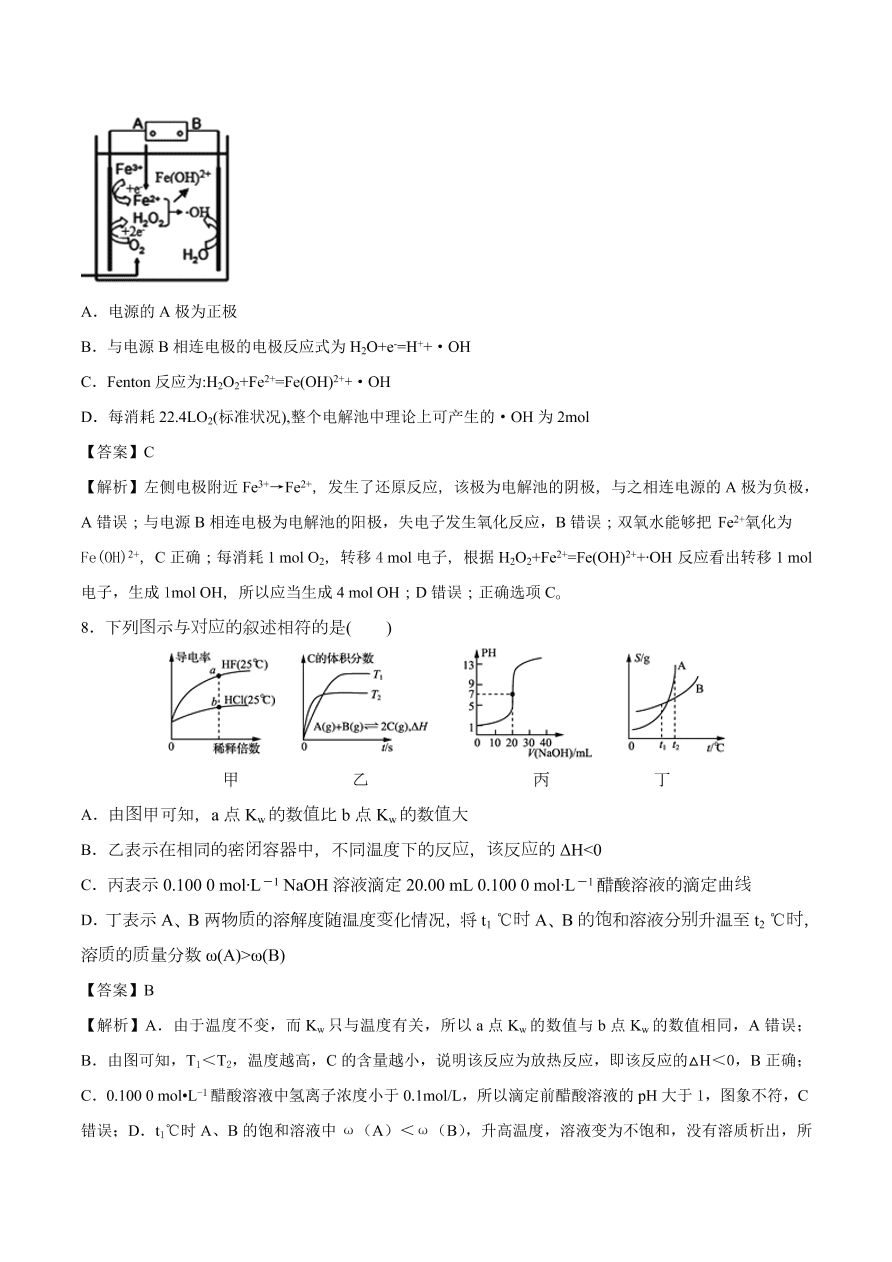 A B
Fe³⁺ Fe(OH)²⁺
+e⁻
Fe²⁺
H₂O₂ ·OH
+2e⁻
O₂ H₂O
A．电源的 A 极为正极
B．与电源 B 相连电极的电极反应式为 H₂O+e⁻=H⁺+·OH
C．Fenton 反应为:H₂O₂+Fe²⁺=Fe(OH)²⁺+·OH
D．每消耗 22.4LO₂(标准状况),整个电解池中理论上可产生的·OH 为 2mol
【答案】C
【解析】左侧电极附近 Fe³⁺→Fe²⁺，发生了还原反应，该极为电解池的阴极，与之相连电源的 A 极为负极，
A 错误；与电源 B 相连电极为电解池的阳极，失电子发生氧化反应，B 错误；双氧水能够把 Fe²⁺氧化为
Fe(OH)²⁺，C 正确；每消耗 1 mol O₂，转移 4 mol 电子，根据 H₂O₂+Fe²⁺=Fe(OH)²⁺+·OH 反应看出转移 1 mol
电子，生成 1mol OH，所以应当生成 4 mol OH；D 错误；正确选项 C。
8．下列图示与对应的叙述相符的是( )
导电率 a HF(25℃) b HCl(25℃) 0 稀释倍数
C的体积分数 T₁ T₂ A(g)+B(g)⇌2C(g),ΔH 0 t/s
PH 13 9 7 5 1 0 10 20 30 40 V(NaOH)/mL
S/g A B 0 t₁ t₂ t/℃
甲 乙 丙 丁
A．由图甲可知，a 点 Kw 的数值比 b 点 Kw 的数值大
B．乙表示在相同的密闭容器中，不同温度下的反应，该反应的 ΔH<0
C．丙表示 0.100 0 mol·L⁻¹ NaOH 溶液滴定 20.00 mL 0.100 0 mol·L⁻¹ 醋酸溶液的滴定曲线
D．丁表示 A、B 两物质的溶解度随温度变化情况，将 t₁ ℃时 A、B 的饱和溶液分别升温至 t₂ ℃时，
溶质的质量分数 ω(A)>ω(B)
【答案】B
【解析】A．由于温度不变，而 Kw 只与温度有关，所以 a 点 Kw 的数值与 b 点 Kw 的数值相同，A 错误；
B．由图可知，T₁＜T₂，温度越高，C 的含量越小，说明该反应为放热反应，即该反应的△H＜0，B 正确；
C．0.100 0 mol•L⁻¹ 醋酸溶液中氢离子浓度小于 0.1mol/L，所以滴定前醋酸溶液的 pH 大于 1，图象不符，C
错误；D．t₁℃时 A、B 的饱和溶液中 ω（A）＜ω（B），升高温度，溶液变为不饱和，没有溶质析出，所